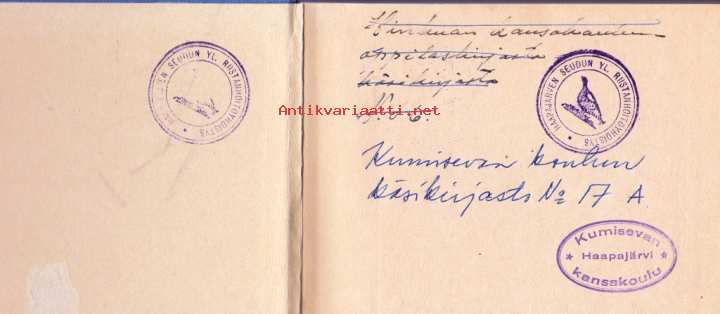 HAAPAJÄRVEN SEUDUN YL. RIISTANHOITOYHDISTYS
kansakoulun
oppilaskirjasto
käsikirjasto
Antikvariaatti.net
HAAPAJÄRVEN SEUDUN YL. RIISTANHOITOYHDISTYS
Kumisevan koulun
käsikirjasto No 17 A.
Kumisevan
Haapajärvi
kansakoulu